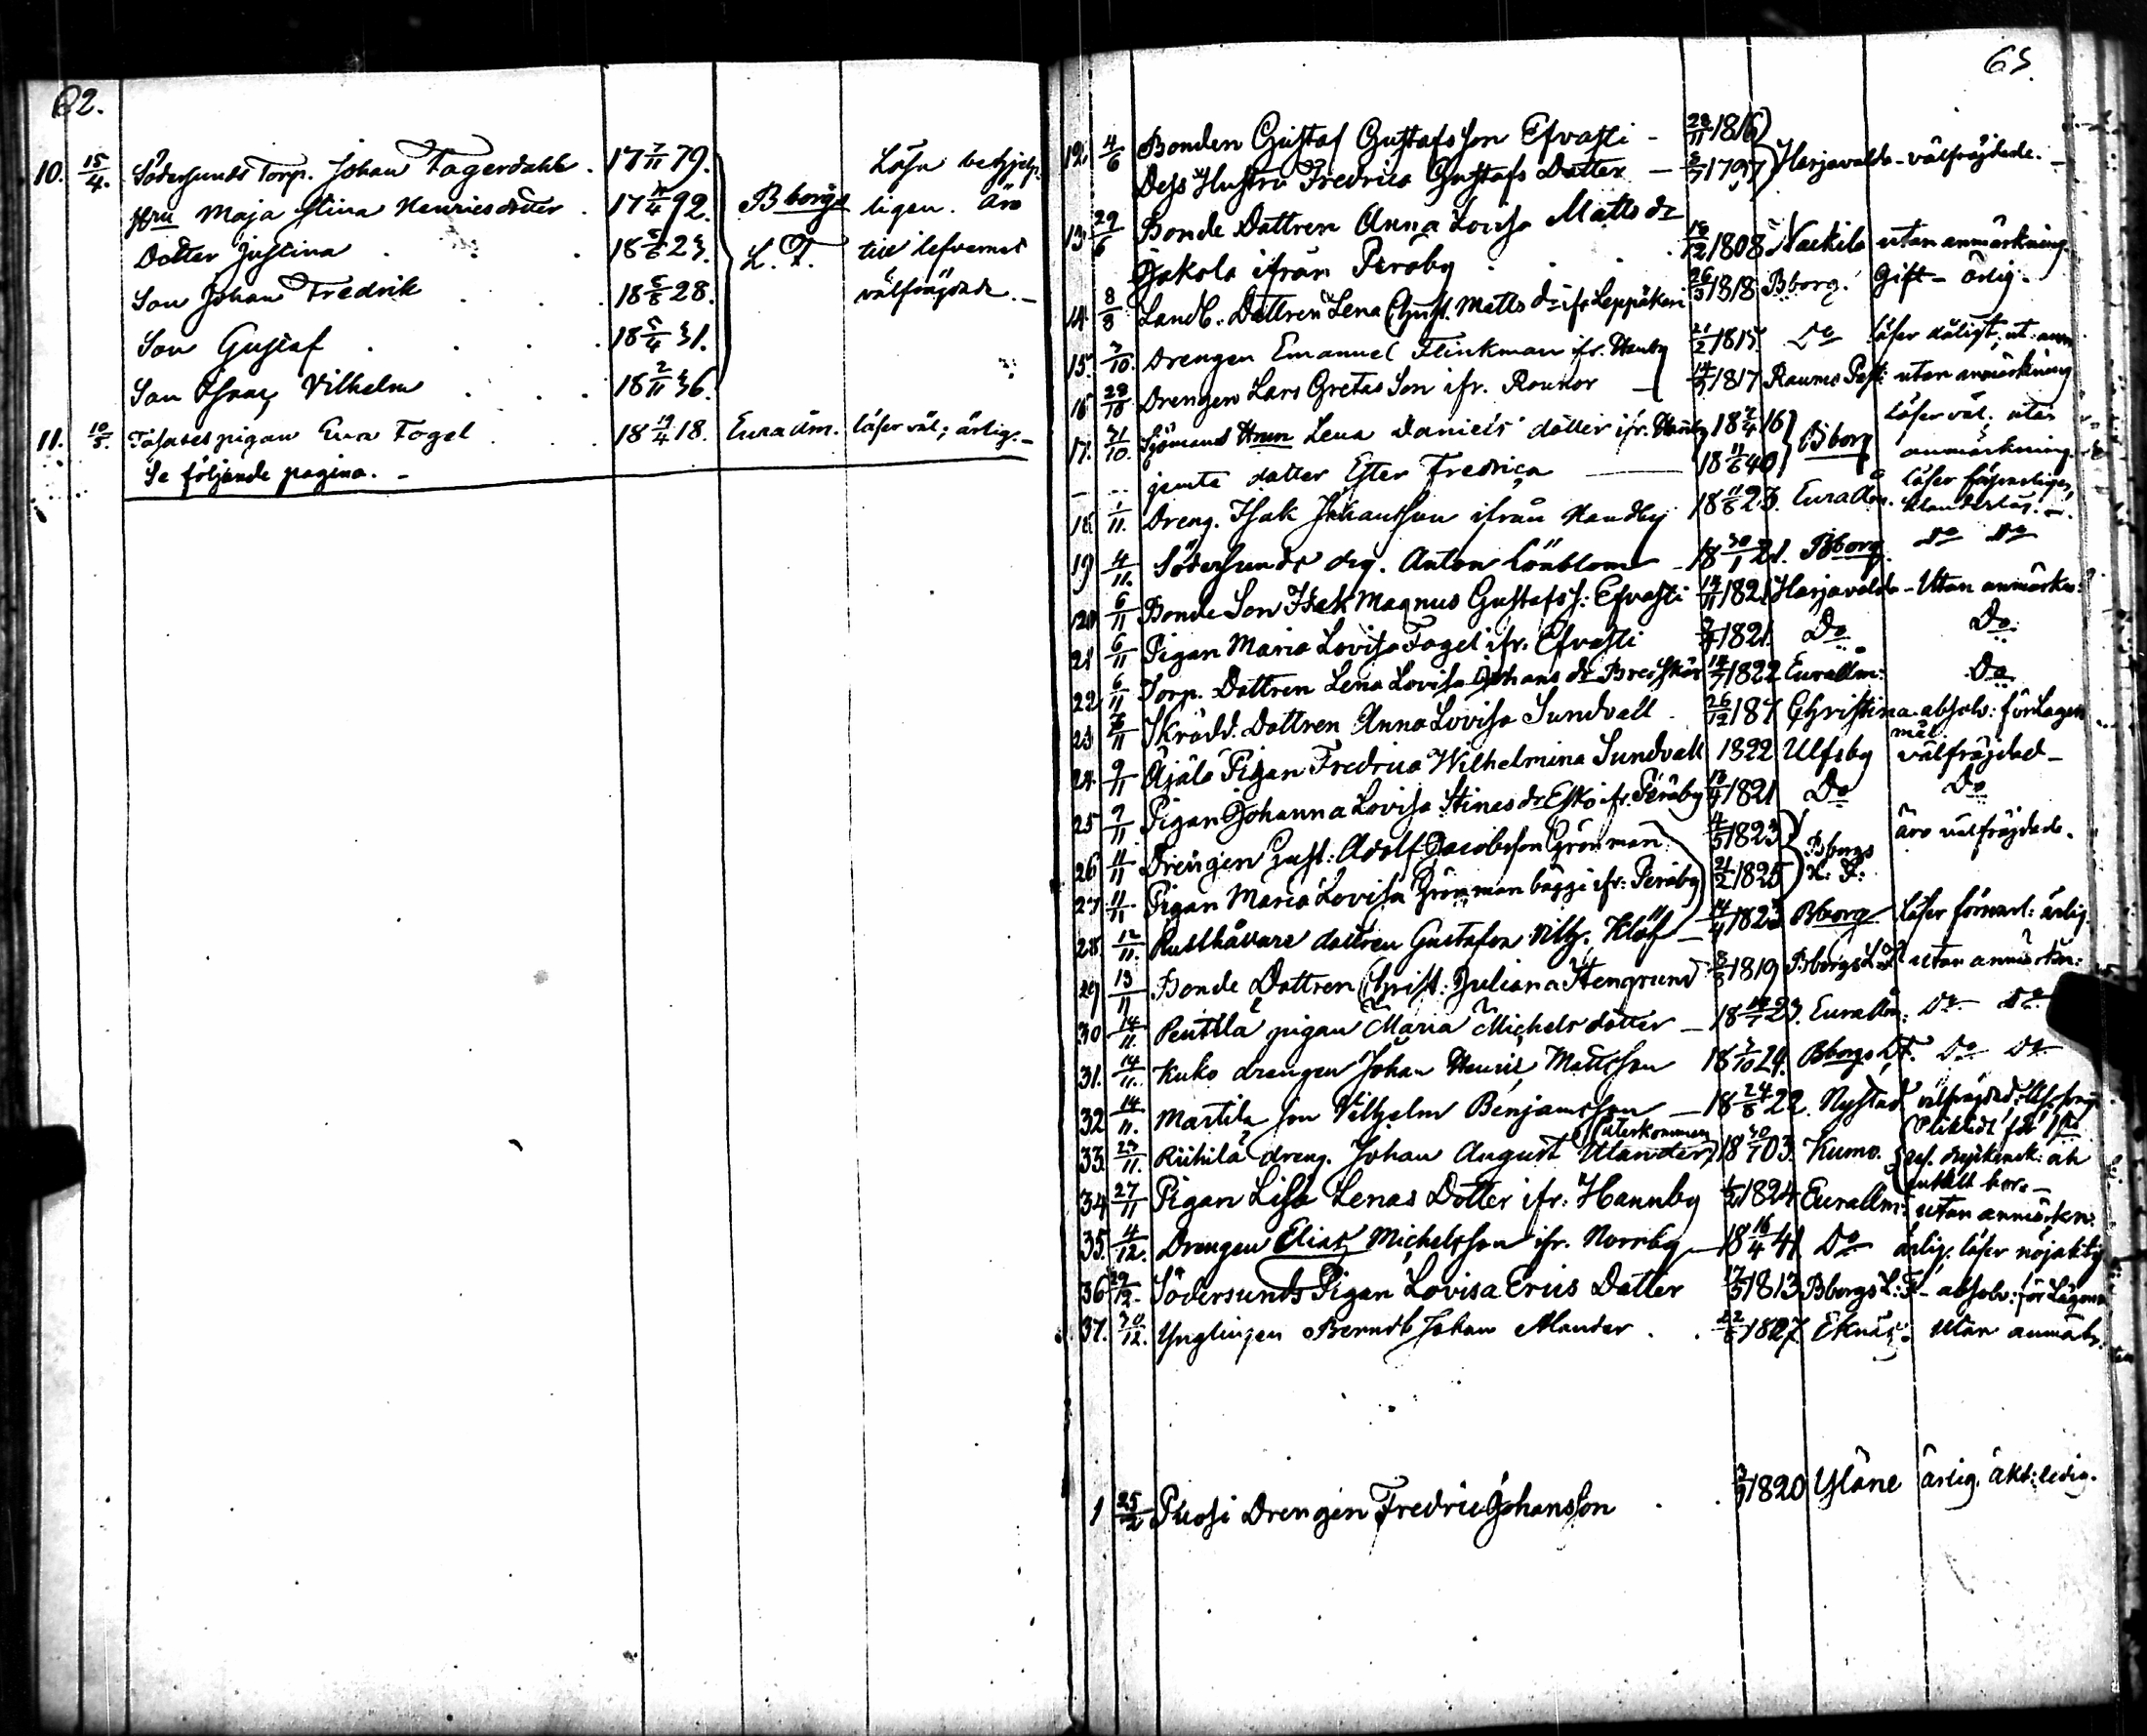 62.
10. 15/4. Södersunds Torp. Johan Fagerdahl . 17 7/11 79. Läsa behjelp-
Hru Maja Stina Henricsdotter . 17 /4 92. Bborgs ligen. Äro
Dotter Justina . . 18 5/6 23. L. F. till lefvernet
Son Johan Fredrik . . 18 6/8 28. välfrägdade. -
Son Gustaf . . . 18 5/4 31.
Son Isaac Vilhelm . . . 18 2/11 36.
11. 10/5. pigan Eva Fogel . . 18 19/4 18. Eura åm. läser väl; ärlig. -
Se följande pagina. -
63.
12. 4/6 Bonden Gustaf Gustafsson Efvasti - 28/11 1816
Dess Hustru Fredrica Gustafs Dotter - 1797 Harjavalda - välfrägdade. -
13. 29/6 Bonde Dottren Anna Lovisa Matts dr
Jakola ifrån Peråby . . . 16/12 1808 Nackila utan anmärkning.
14. 8/8 Landb. Dottren Lena Christ. Matts dr ifr Leppäkari 26/3 1818 Bborg. Gift - ärlig.
15. 3/10. Drengen Emanuel Flinkman ifr. Hanby 21/2 1815. Do läser dåligt, ut. anm
16. 28/10 Drengen Lars Gretas Son ifr. Rounor - 14/9 1817 Raumo Past: utan anmärkning
17. 31/10. Sjömans Hrun Lena Daniels dotter ifr. Hanby 18 /4 16 Bborg läser väl; utan
jemte dotter Ester Fredrica 18 11/6 40 anmärkning.
18. 1/11. Dreng. Isak Johansson ifrån Handby 18 11/6 23. Eura åm. läser försvarligen, klanderlös. -
19. 4/11. Södersunds drg. Anton Lönblom - 18 30/1 21. Bborg. do do
20. 6/11 Bonde Son Isak Magnus Gustafss: Efvasti 14/11 1821 Harjavalda - Utan anmärkn:
21. 6/11 Pigan Maria Lovisa Fagel ifr. Efvasti 1821. Do Do
22. 6/11 Torp. Dottren Lena Lovisa Johans dr Bredskär 1822 Euraåm: Do
23. 7/11 Skrädd. Dottren Anna Lovisa Sundvall . 26/12 Christina absolv: för Lägers
mål
24. 9/11 Äjälä Pigan Fredrica Wilhelmina Sundvall 1822 Ulfsby välfrägdad -
25. 9/11 Pigan Johanna Lovisa Stinas dr Esko ifr. Peråby 13/4 1821 Do Do
26. 11/11 Drengen Gust: Adolf Jacobsson Grönman 4/5 1823 Bborgs äro välfrägdade.
27. 11/11 Pigan Maria Lovisa Grönman bägge ifr: Peråby 21/2 1825 L: F:
28. 12/11. Rusthållare dottren Gustafva Vilh. Klöf - 14/4 1823 Bborg läser försvarl: ärlig.
29. 13/11 Bonde Dottren Christ: Juliana Stengrund 8/8 1819 Bborgs L. F. utan anmärkn:
30. 14/11. Penttilä pigan Maria Michels dotter - 18 23. Euraåm: do do
31. 14/11. Kuko drengen Johan Henric Mattsson 18 3/10 24. Bborgs L.F. do do
32. 14/11. Martila son Vilhelm Benjamsson - 18 24/8 22. Nystad välfrägdad.
33. 23/11. Riihilä dreng. Johan August Ulander (återkommen) 18 30/7 03. Kumo. Pliktat för 1sta
enkelt hor. -
34. 27/11 Pigan Lisa Lenas Dotter ifr: Hannby 1824 Euraåm: utan anmärkn.
35. 4/12. Drengen Elias Michelsson ifr. Norrby - 18 16/4 41 Do ärlig. läser nöjaktig
36. 29/12. Södersunds Pigan Lovisa Erics Dotter 17/3 1813 Bborgs L: F - absolv: för Lägers
37. 30/12. Ynglingen Berndt Johan Alander . . 22/8 1827. Eknäs: utan anmärkn.
1 25/2 Puosi Drengen Fredric Johansson . . 1820 Yläne ärlig. äkt: ledig.